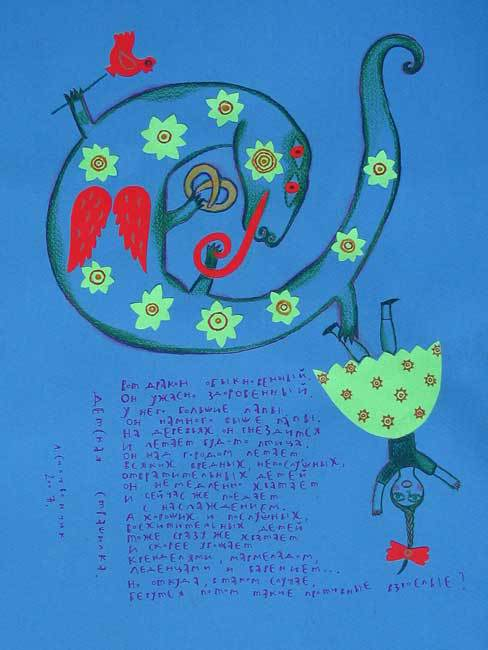 Вот дракон обыкновенный.
Он ужасно здоровенный.
У него большие лапы.
Он намного выше папы.
На деревьях он гнездится
и летает будто птица.
Он над городом летает
всяких вредных, непослушных,
отвратительных детей
он немедленно хватает
и сейчас же поедает
с наслаждением.
А хороших и послушных,
восхитительных детей
тоже сразу же хватает
и скорее угощает
кренделями, мармеладом,
леденцами и вареньем...
Но откуда, в таком случае,
берутся потом такие противные взрослые?
детская страшилка.